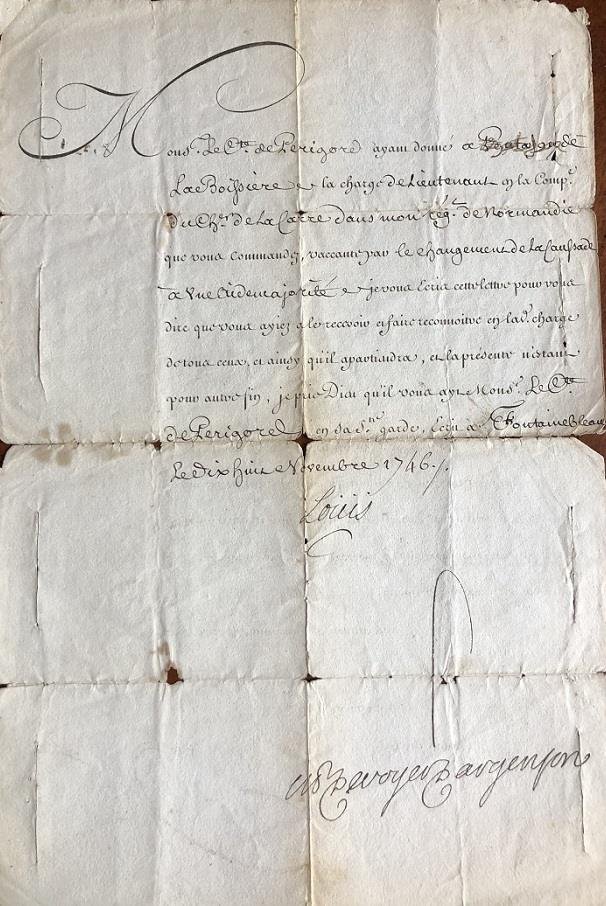 Mons.r Le C.te de Perigord ayant donné a
La Boissiere la charge de Lieutenant en la Comp.e
du Ch.er de La Carre dans mon reg.t de Normandie
que vous commandez, vaccante par le changement de La Caussade
a une Aidemajorité je vous ecris cette lettre pour vous
dire que vous ayiez a le recevoir et faire reconnoitre en lad.e charge
de tous ceux, et ainsy qu'il apartiendra, et la presente n'étant
pour autre fin, je prie Dieu qu'il vous ayt Mons.r Le C.te
de Perigord en sa S.te garde, Ecrit a Fontainebleau
Le dix huit Novembre 1746./.
Louis
M P De voyer D'argenson